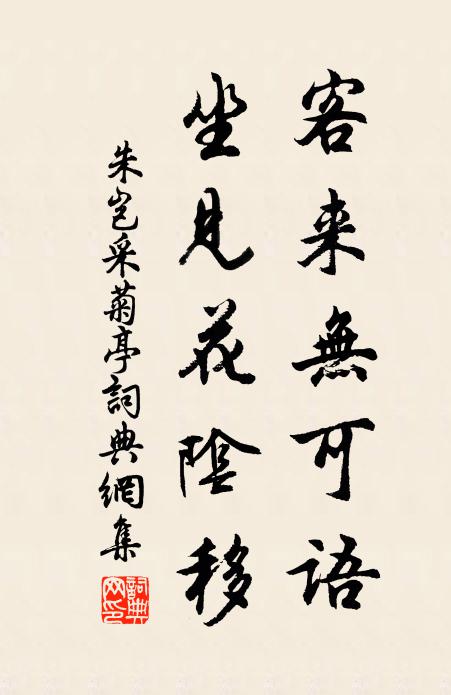 客来無可語
坐見花陰移
朱岂采菊亭詞典網集
詞典网印